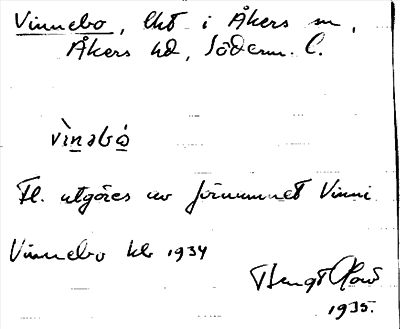 Vinnebo, lht i Åkers sn,
Åkers hd, Söderm. l.
vìnabó
Fl. utgöres av förnamnet Vinni
Vinnebo kb 1934
Bengt
1935.